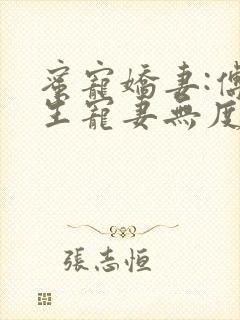 蜜寵嬌妻:傅
生寵妻無度
張志恒